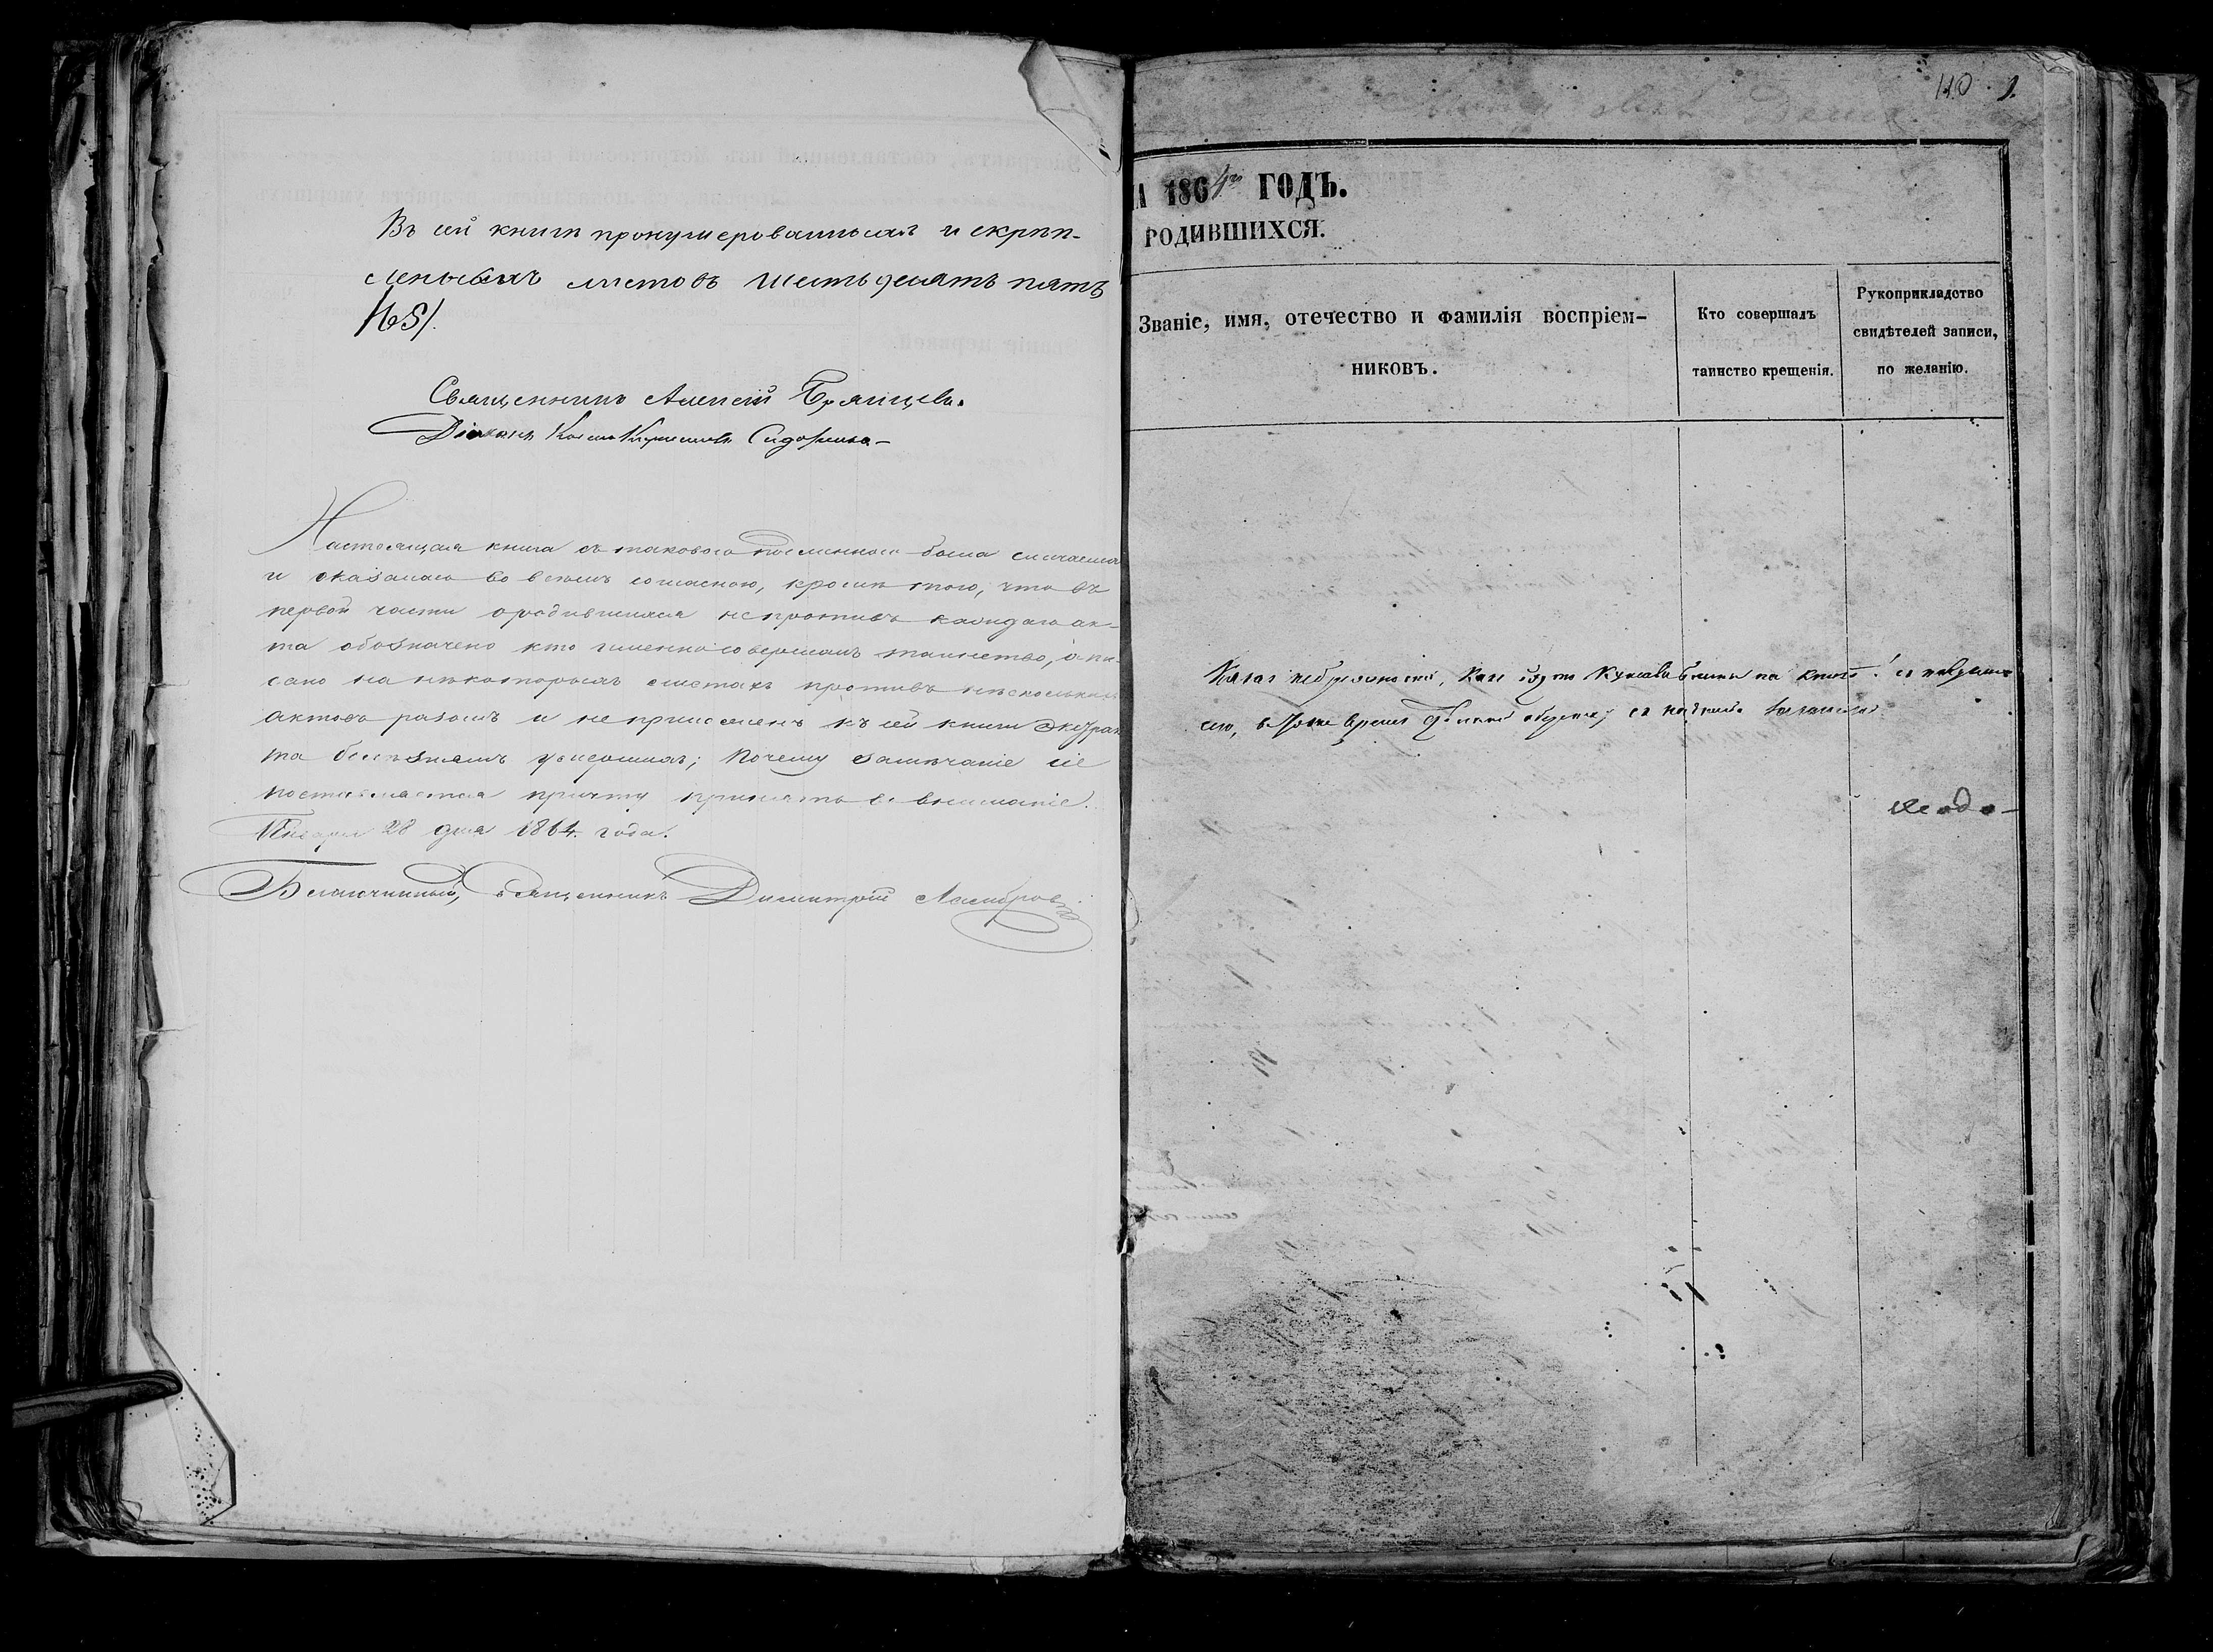 Въ сей книги пронумерованныхъ и скрѣп-
ленныхъ листовъ шестьдесятъ пять
/65/.
Священникъ Алексій Брянцевъ.
Діаконъ Косма Сидоренко
Настоящая книга съ таковою подлинною была сличаема
и оказалась во всемъ согласною, кромѣ того, что въ
первой части о родившихся не противъ каждаго ак-
та обозначено кто именно совершалъ таинство, а пи-
сано на нѣкоторыхъ листахъ противъ нѣсколькихъ
актовъ разомъ и не приложенъ къ сей книги Экстрак
та болѣзнемъ умершихъ; почему замѣчаніе сіе
поставляется причту принять во вниманіе.
Января 28 дня 1864 года.
Благочинный, священникъ Димитрій
110
1.
А 1864го ГОДЪ.
РОДИВШИХСЯ.
Званіе, имя, отчество и фамилія воспріем-
никовъ.
Кто совершалъ
таинство крещенія.
Рукоприкладство
свидѣтелей записи,
по желанію.
Какая небрежность, какъ будто на книгѣ!
въ тоже время